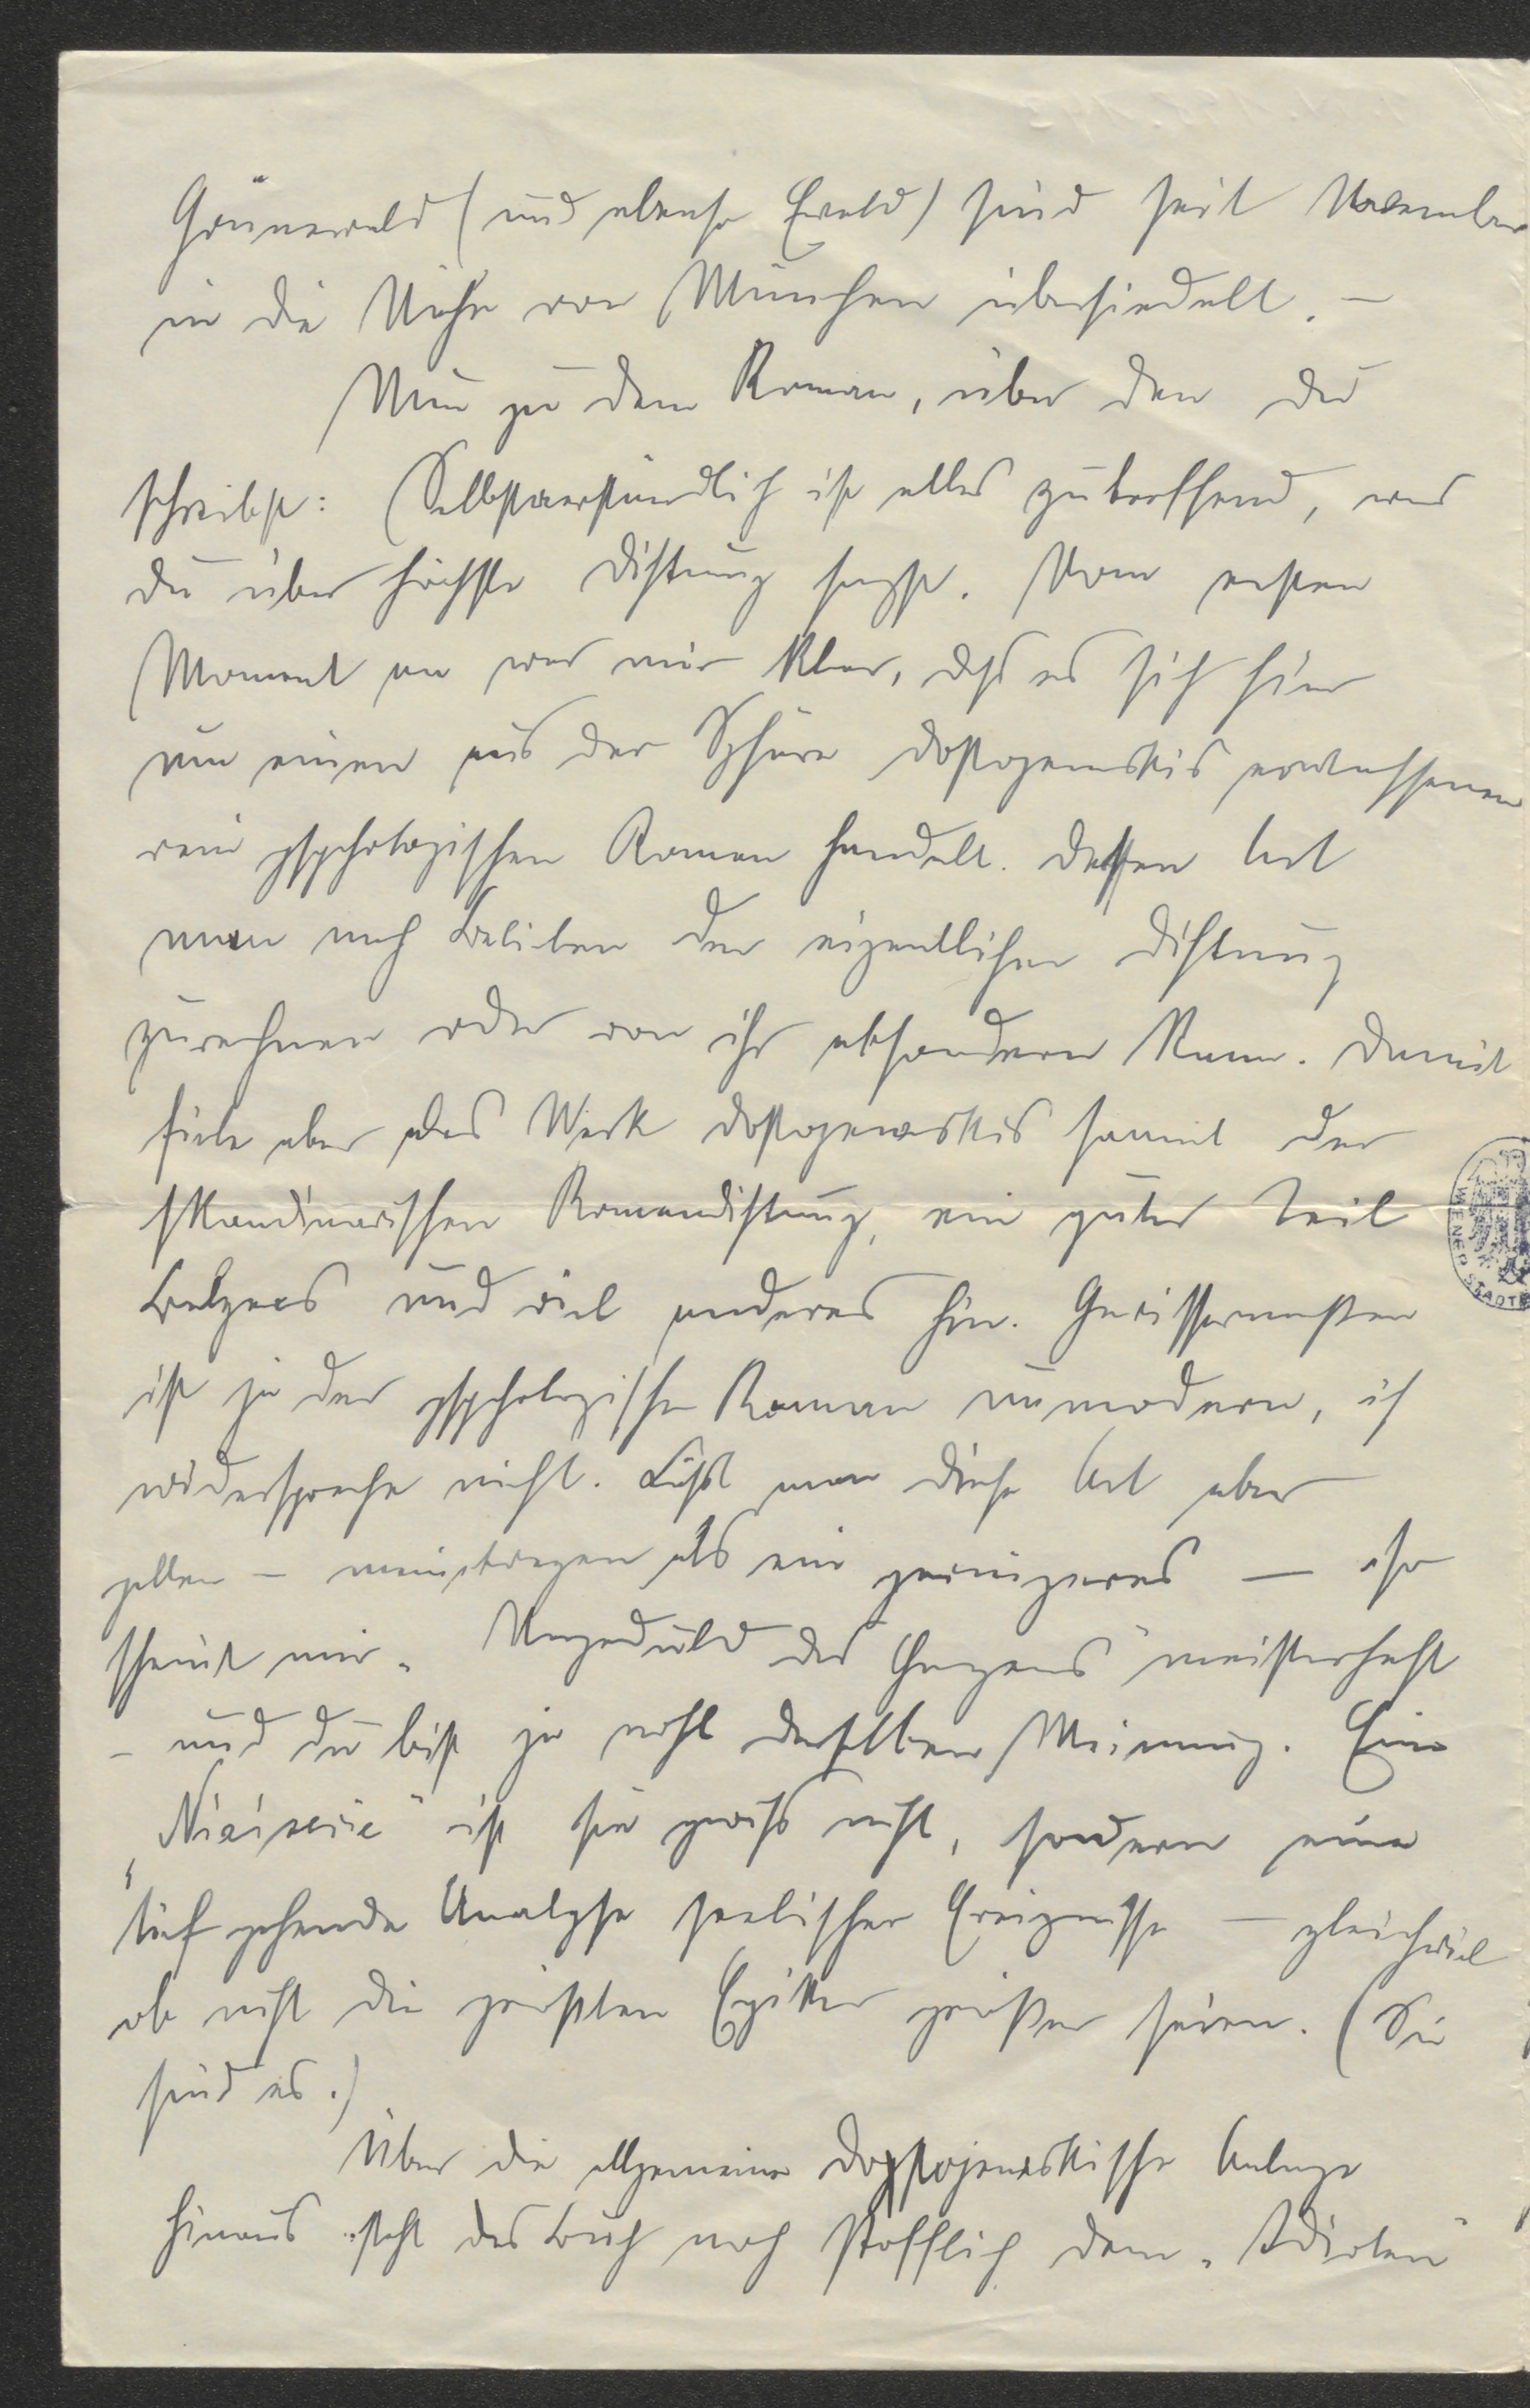 Grünewald (und ebenso Ewald) sind seit November
in die Nähe von München übersiedelt. –
Nun zu dem Roman, über den du
schreibst: Selbstverständlich ist alles zutreffend, was
du über höchste Dichtung sagst. Vom ersten
Moment an war mir klar, dass es sich hier
um einen aus der Sphäre Dostojewskis erwachsenen
rein psychologischen Roman handelt. Dessen Art
man nach Belieben der eigentlichen Dichtung
zurechnen oder von ihr absondern kann. Damit
fiele aber das Werk Dostojewskis samt der
skandinavischen Romandichtung, ein guter Teil
Balzacs und viel anderes hin. Gewissermaßen
ist ja der psychologische Roman unmodern, ich
widerspreche nicht. Läßt man diese Art aber
gelten – meinetwegen als ein geringeres – so
scheint mir „Ungeduld des Herzens“ meisterhaft
– und du bist ja wohl derselben Meinung. Eine
„Niaiserie“ ist sie gewiß nicht, sondern eine
tief gehende Analyse seelischer Ereignisse – gleichviel
ob nicht die größten Epiker größer seien. (Sie
sind es.)
Über die allgemeine Dostojewskische Anlage
hinaus steht das Buch noch stofflich dem „Idioten“
WIENER STADT